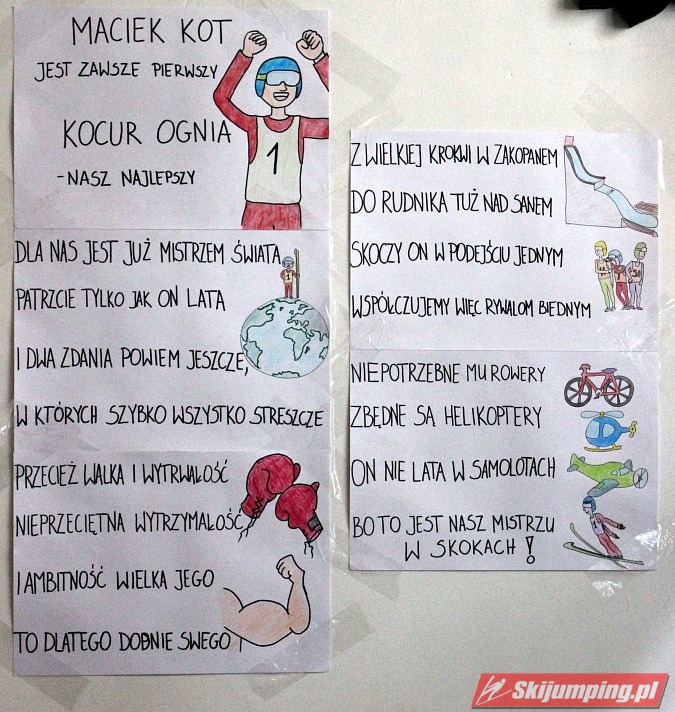 MACIEK KOT
JEST ZAWSZE PIERWSZY
KOCUR OGNIA
-NASZ NAJLEPSZY
1
DLA NAS JEST JUŻ MISTRZEM ŚWIATA
1
PATRZCIE TYLKO JAK ON LATA
I DWA ZDANIA POWIEM JESZCZE,
W KTÓRYCH SZYBKO WSZYSTKO STRESZCZE
PRZECIEŻ WALKA I WYTRWAŁOŚĆ
NIEPRZECIĘTNA WYTRZYMAŁOŚĆ
I AMBITNOŚĆ WIELKA JEGO
TO DLATEGO DOBNIE SWEGO!
Z WIELKIEJ KROKWI W ZAKOPANEM
DO RUDNIKA TUŻ NAD SANEM
SKOCZY ON W PODEJŚCIU JEDNYM
WSPÓŁCZUJEMY WIĘC RYWALOM BIEDNYM
NIEPOTRZEBNE MU ROWERY
ZBĘDNE SĄ HELIKOPTERY
ON NIE LATA W SAMOLOTACH
BO TO JEST NASZ MISTRZU
W SKOKACH!
Skijumping.pl